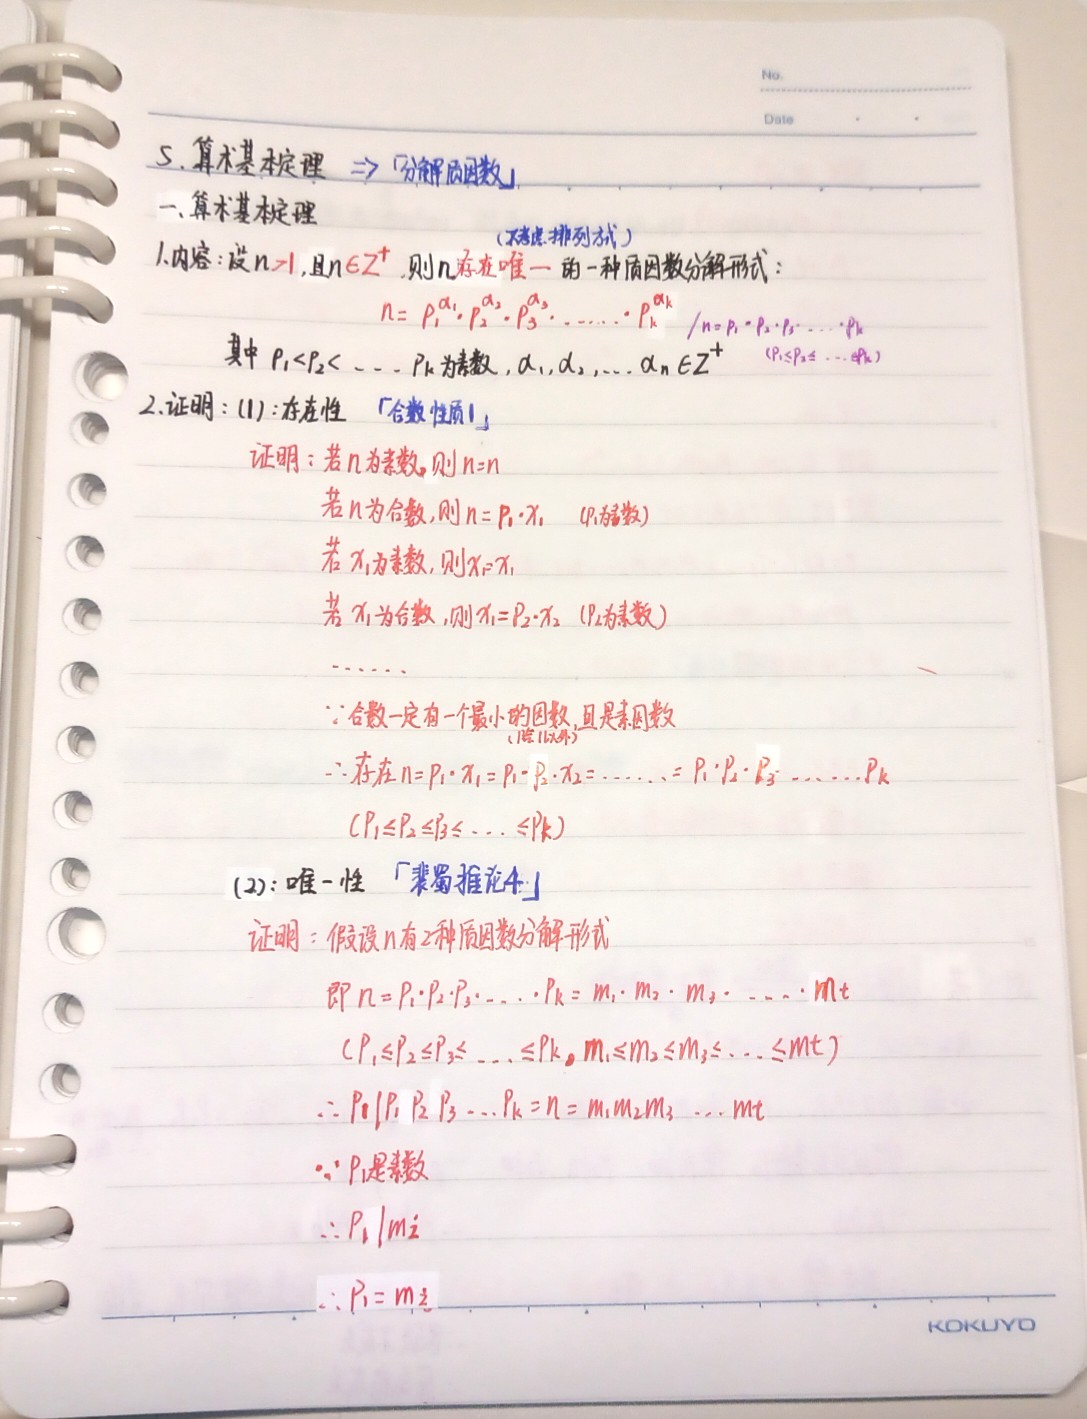 No.
Date
5. 算术基本定理 => 「分解质因数」
一、算术基本定理
(不考虑排列方式)
1.内容:设n>1,且n∈Z⁺,则n存在唯一的一种质因数分解形式:
n= p₁^α₁·p₂^α₂·p₃^α₃·……·pₖ^αₖ /n=p₁·p₂·p₃·……·pₖ
其中 p₁<p₂<……pₖ为素数,α₁,α₂,…αₙ∈Z⁺ (p₁≤p₂≤…≤pₖ)
2.证明:(1):存在性 「合数性质1」
证明:若n为素数,则n=n
若n为合数,则n=p₁·x₁ (p₁为素数)
若x₁为素数,则x₁=x₁
若x₁为合数,则x₁=p₂·x₂ (p₂为素数)
……
∵合数一定有一个最小的因数,且是素因数
(除1以外)
∴存在n=p₁·x₁=p₁·p₂·x₂=……=p₁·p₂·p₃……pₖ
(p₁≤p₂≤p₃≤…≤pₖ)
(2):唯一性 「裴蜀推论4」
证明:假设n有2种质因数分解形式
即n=p₁·p₂·p₃·…·pₖ=m₁·m₂·m₃·…·mt
(p₁≤p₂≤p₃≤…≤pₖ,m₁≤m₂≤m₃≤…≤mt)
∴p₁|p₁p₂p₃…pₖ=n=m₁m₂m₃…mt
∵p₁是素数
∴p₁|mi
∴p₁=mi
KOKUYO